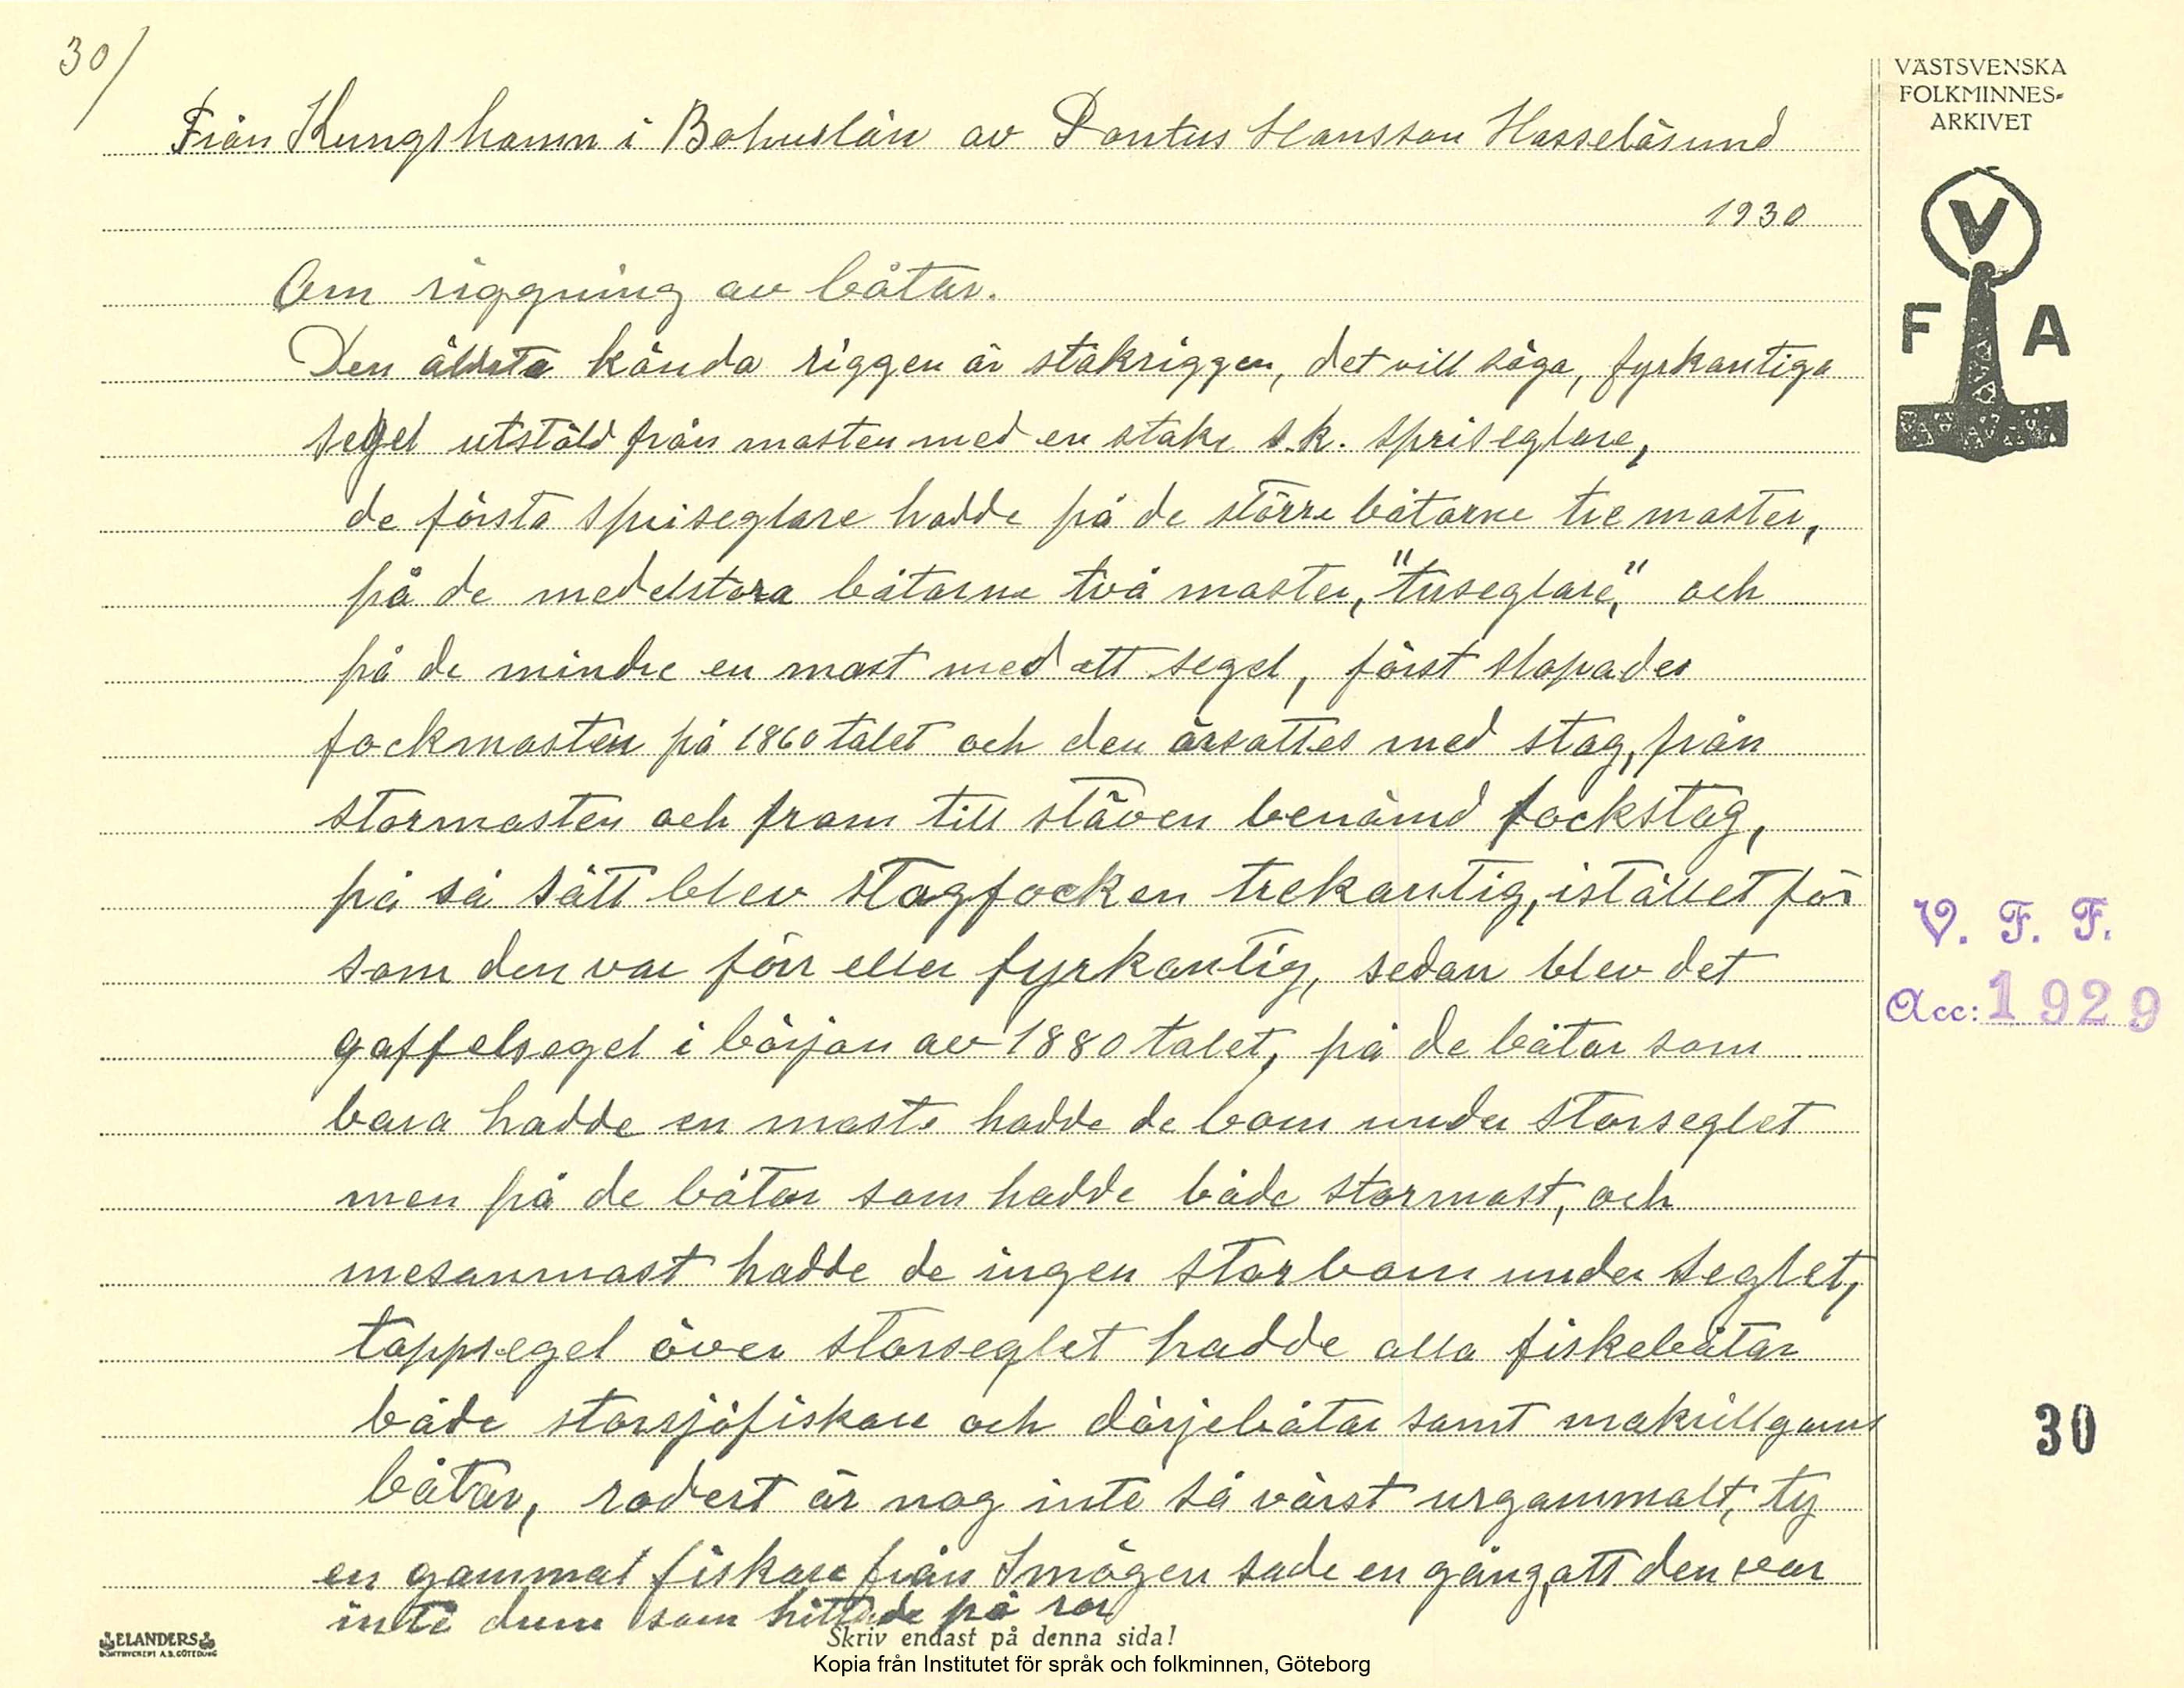 30/
VÄSTSVENSKA
FOLKMINNES-
ARKIVET
Från Kungshamn i Bohuslän av Pontus Hansson Hasselösund
1930
V
F A
Om riggning av båtar.
Den äldsta kända riggen är stakriggen, det vill säga, fyrkantiga
segel utstäld från masten med en stake s.k. spriseglare,
de första spriseglare hadde på de större båtarne tre master,
på de medelstora båtarne två master, "tuseglare," och
på de mindre en mast med ett segel, först slopades
fockmasten på 1860 talet och den ärsattes med stag, från
stormasten och fram till stäven benämd fockstag,
på så sätt blev stagfocken trekantig, istället för
som den var förr eller fyrkantig, sedan blev det
gaffelsegel i början av 1880 talet, på de båtar som
bara hadde en mast hadde de bom under storseglet
men på de båtar som hadde både stormast, och
mesanmast hadde de ingen storbom under seglet,
toppsegel över storseglet hadde alla fiskebåtar
både storsjöfiskare och dörjebåtar samt makrillgarns
båtar, rodert är nog inte så värst urgammalt, ty
en gammal fiskare från Smögen sade en gång, att den var
inte dum som hittade på ror
V. F. F.
Acc: 1929
30
ELANDERS
BOKTRYCKERI A.B. GÖTEBORG
Skriv endast på denna sida!
Kopia från Institutet för språk och folkminnen, Göteborg